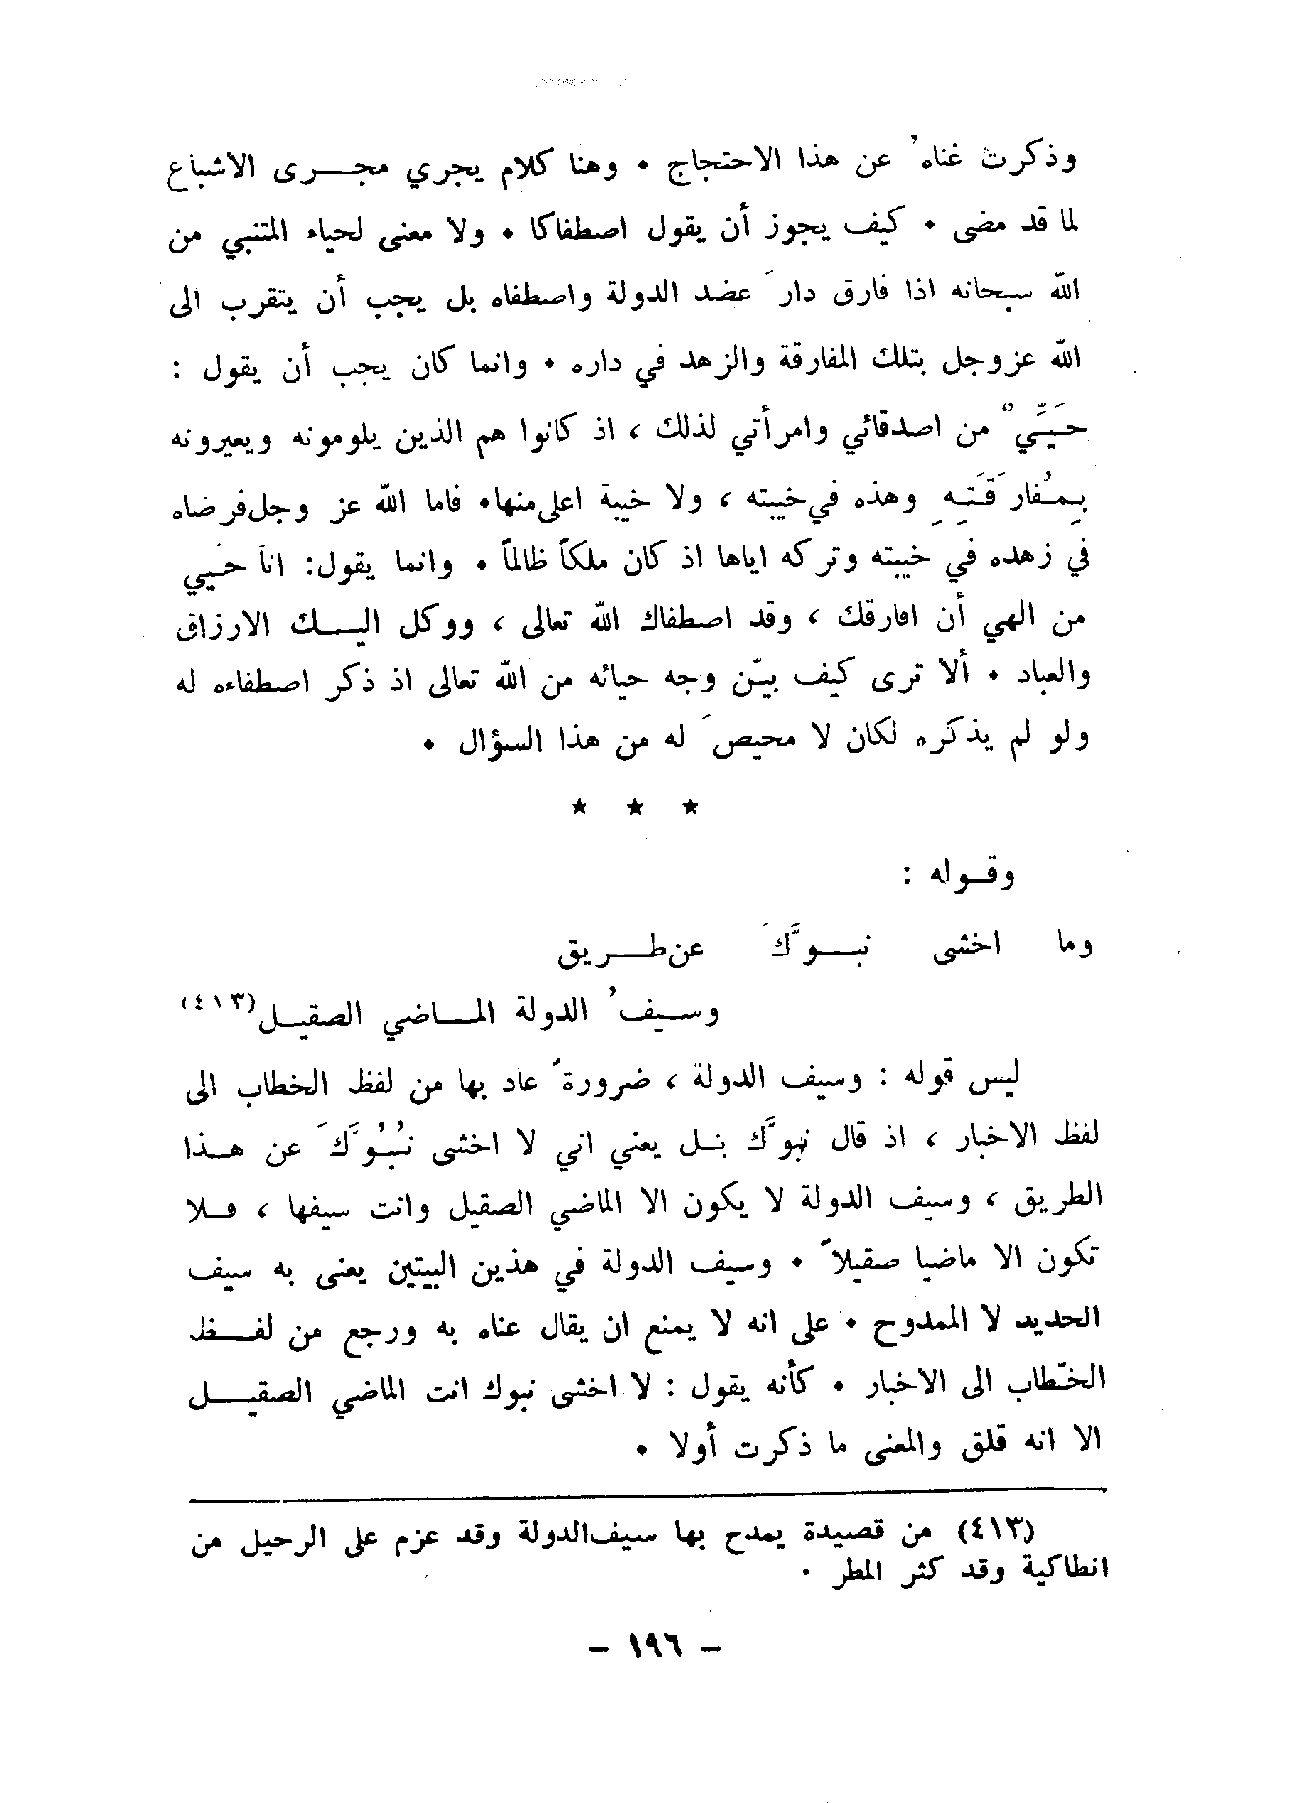 وذكرت غناهُ عن هذا الاحتجاج • وهنا كلام يجري مجـــرى الاشباع
لما قد مضى • كيف يجوز أن يقول اصطفاكا • ولا معنى لحياء المتنبي من
الله سبحانه اذا فارق دارَ عضد الدولة واصطفاه بل يجب أن يتقرب الى
الله عزوجل بتلك المفارقة والزهد في داره • وانما كان يجب أن يقول :
حَيِّيٌ من اصدقائي وامرأتي لذلك ، اذ كانوا هم الذين يلومونه ويعيرونه
بِمُفارَقَتِهِ وهذه في خيبته ، ولا خيبة اعلى منها• فاما الله عز وجل فرضاه
في زهده في خيبته وتركه اياها اذ كان ملكاً ظالماً • وانما يقول: انا حَيي
من الهي أن افارقك ، وقد اصطفاك الله تعالى ، ووكل اليــك الارزاق
والعباد • ألا ترى كيف بيّن وجه حيائه من الله تعالى اذ ذكر اصطفاءه له
ولو لم يذكره لكان لا محيصَ له من هذا السؤال •
★ ★ ★
وقــوله :
وما اخشى نبــوَّكَ عن طــريق
وســيفُ الدولة المــاضي الصقيــل(٤١٣)
ليس قوله : وسيف الدولة ، ضرورةً عاد بها من لفظ الخطاب الى
لفظ الاخبار ، اذ قال نبوَّك بــل يعني اني لا اخشى نُبُوَّكَ عن هــذا
الطريق ، وسيف الدولة لا يكون الا الماضي الصقيل وانت سيفها ، فــلا
تكون الا ماضيا صقيلاً • وسيف الدولة في هذين البيتين يعنى به سيف
الحديد لا الممدوح • على انه لا يمنع ان يقال عناه به ورجع من لفــظ
الخطاب الى الاخبار • كأنه يقول : لا اخشى نبوك انت الماضي الصقيــل
الا انه قلق والمعنى ما ذكرت أولا •
(٤١٣) من قصيدة يمدح بها سيف الدولة وقد عزم على الرحيل من
انطاكية وقد كثر المطر •
– ١٩٦ –